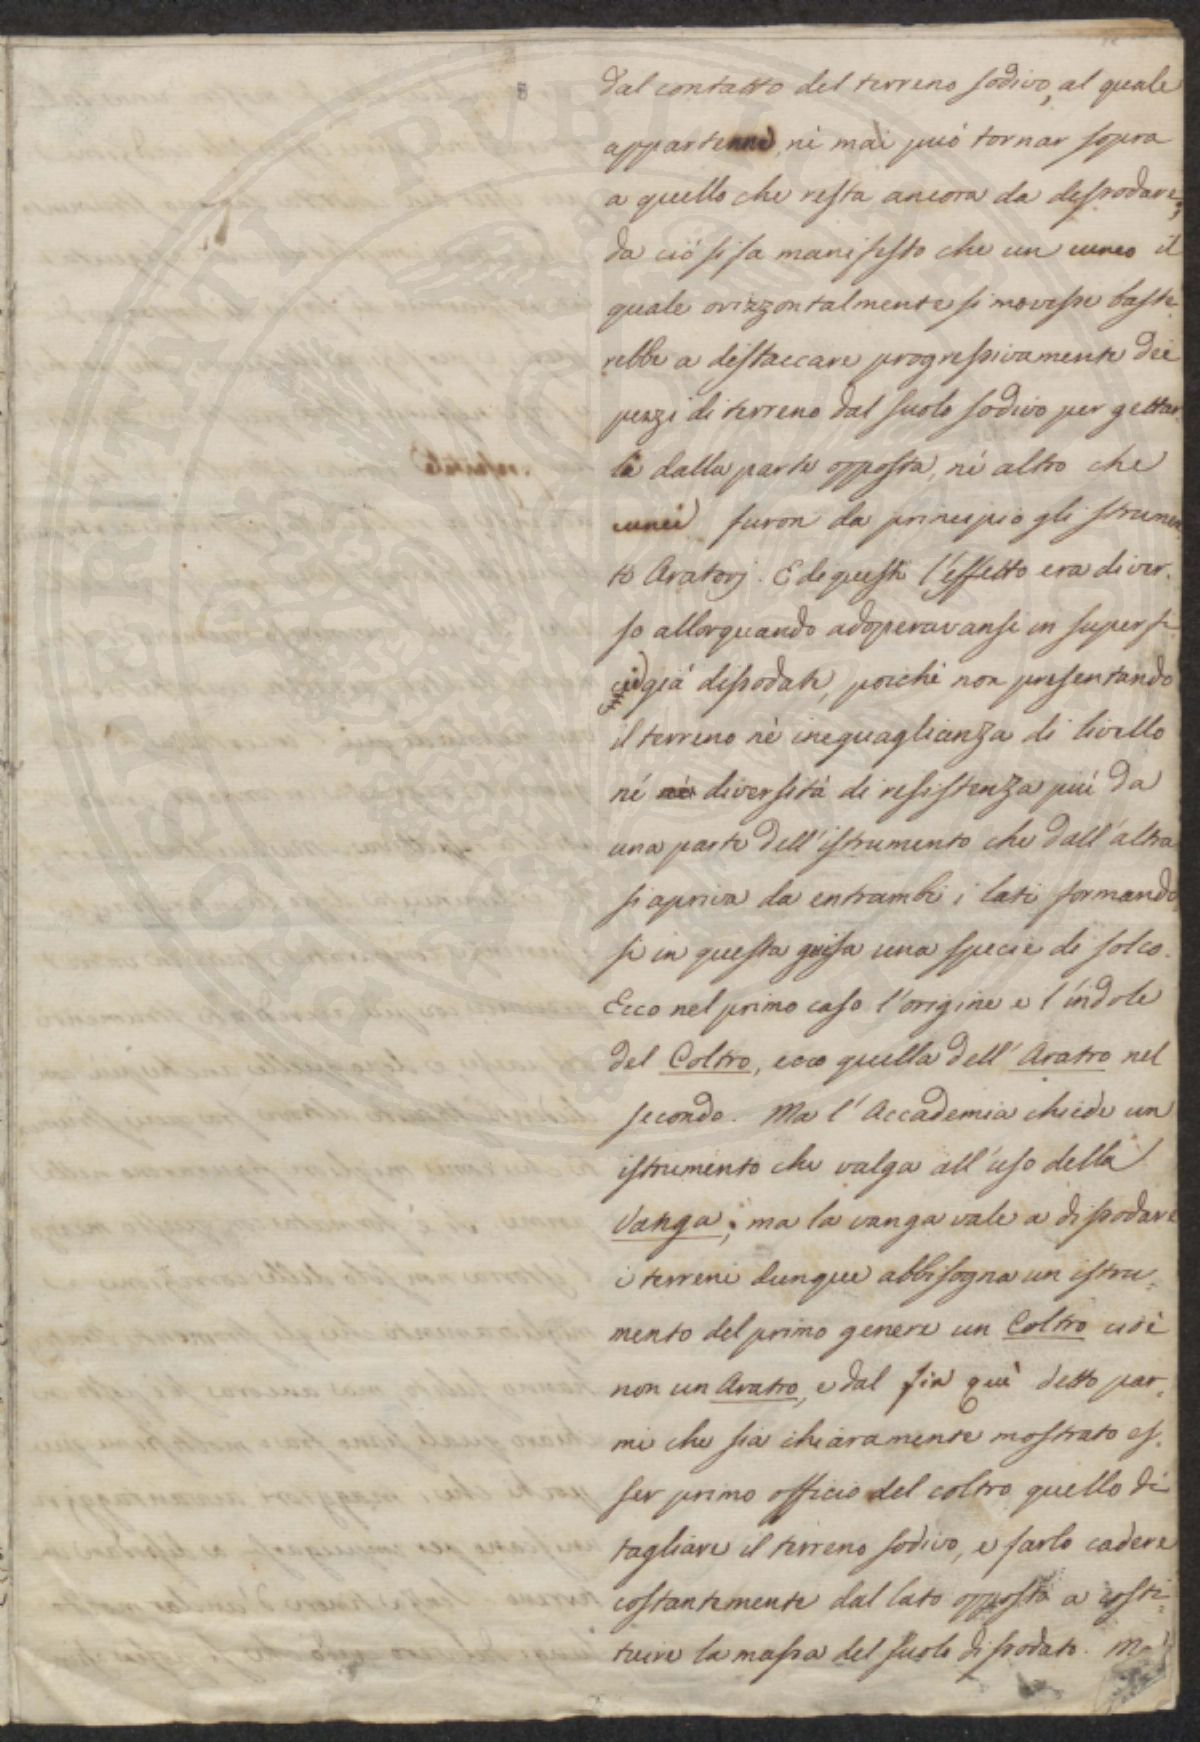 dal contatto del terreno sodivo, al quale
appartenne, nè mai può tornar sopra
a quello che resta ancora da dissodare;
da ciò si fa manifesto che un cuneo il
quale orizzontalmente si movesse baste
rebbe a distaccare progressivamente dei
pezzi di terreno dal suolo sodivo per gettar
li dalla parte opposta, nè altro che
cunei furon da principio gli strumen
ti Aratorj. E di questi l'effetto era diver.
so allorquando adoperavansi in superfi
cie già dissodate, poichè non presentando
il terreno nè ineguaglianza di livello
nè diversità di resistenza più da
una parte dell'istrumento che dall'altra
si apriva da entrambi i lati formando
si in questa guisa una specie di solco.
Ecco nel primo caso l'origine e l'indole
del Coltro, ecco quella dell'Aratro nel
secondo. Ma l'Accademia chiede un
istrumento che valga all'uso della
Vanga; ma la vanga vale a dissodare
i terreni dunque abbisogna un istru-
mento del primo genere un Coltro cioè
non un Aratro, e dal fin quì detto par-
mi che sia chiaramente mostrato es-
ser primo officio del coltro quello di
tagliare il terreno sodivo, e farlo cadere
costantemente dal lato opposto a costi-
tuire la massa del suolo dissodato. Ma